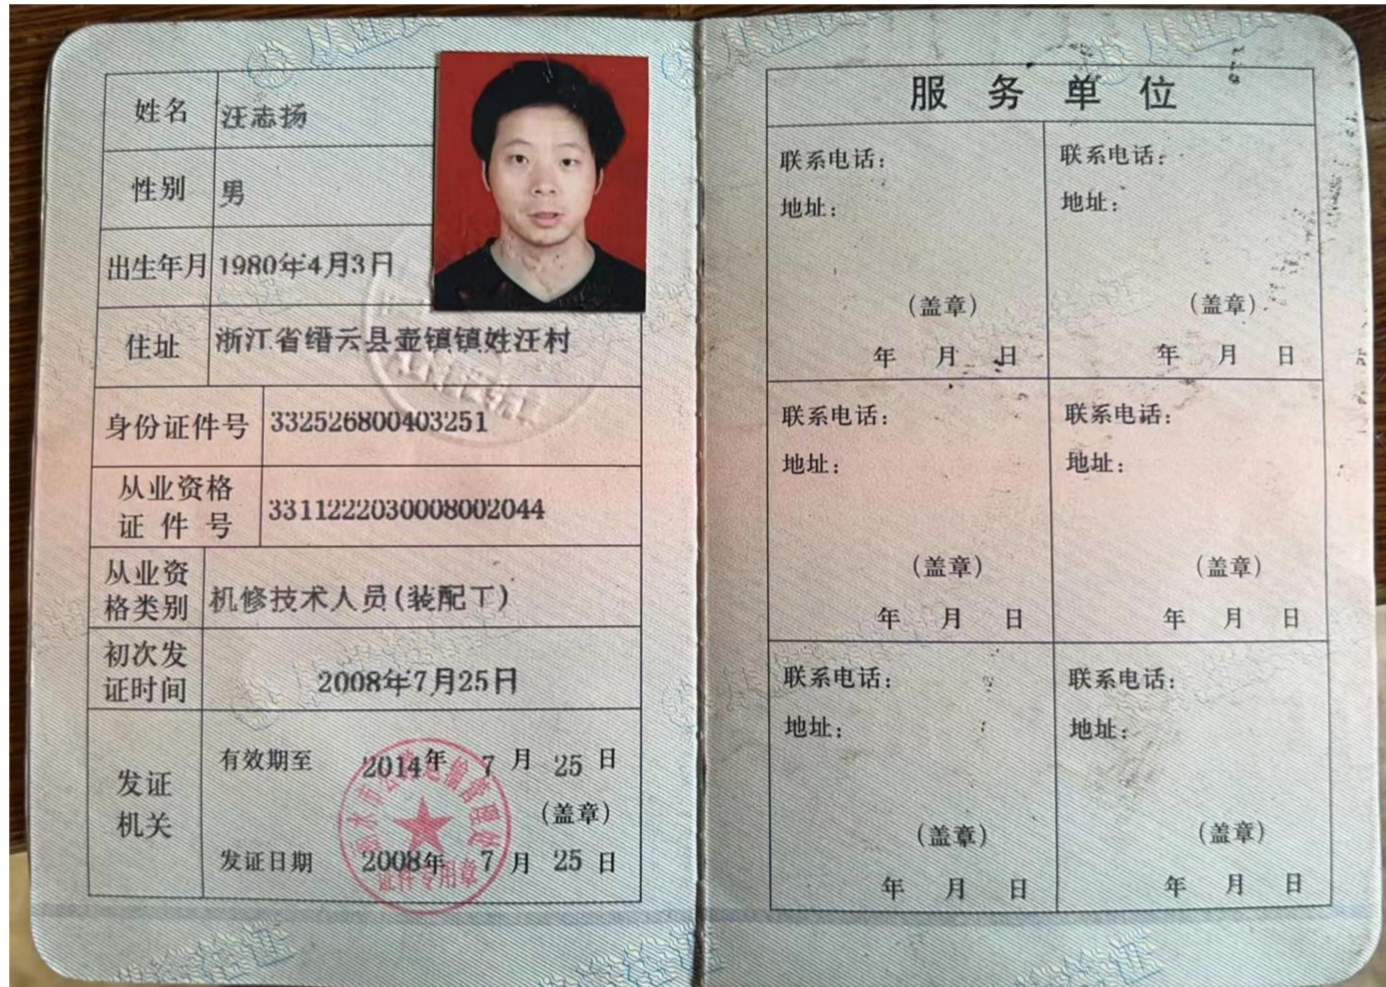 姓名 汪志扬
性别 男
出生年月 1980年4月3日
住址 浙江省缙云县壶镇镇姓汪村
身份证件号 332526800403251
从业资格
证件号 3311222030008002044
从业资
格类别 机修技术人员(装配丁)
初次发
证时间 2008年7月25日
发证
机关
有效期至 2014年 7 月 25 日
(盖章)
发证日期 2008年 7 月 25 日
证件专用章
服务单位
联系电话:
地址:
(盖章)
年 月 日
联系电话:
地址:
(盖章)
年 月 日
联系电话:
地址:
(盖章)
年 月 日
联系电话:
地址:
(盖章)
年 月 日
联系电话:
地址:
(盖章)
年 月 日
联系电话:
地址:
(盖章)
年 月 日